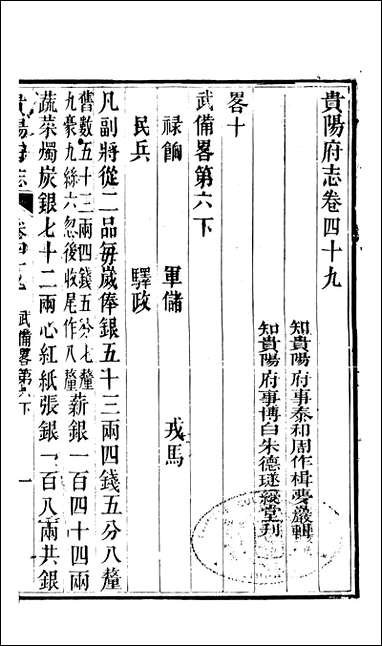 貴陽府志卷四十九
知貴陽府事泰和周作楫夢巖輯
知貴陽府事博白朱德璲綬堂刋
畧十
武備畧第六下
祿餉 軍儲 戎馬
民兵 驛政
凡副將從二品每歲俸銀五十三兩四錢五分八釐
舊數五十三兩四錢五分七釐
九豪九絲六忽後收尾作八釐
薪銀一百四十四兩
蔬菜燭炭銀七十二兩心紅紙張銀一百八兩共銀
貴陽府志
卷四十九
武備畧第六下
一